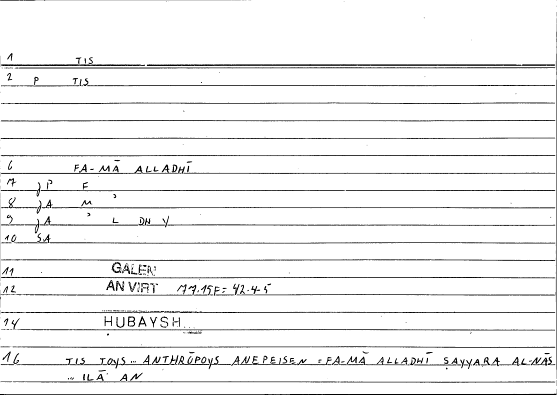 1 TIS
2 P TIS
6 FA-MĀ ALLADHĪ
7 jP F
8 jA M ʾ
9 jA ʾ L DH Y
10 SA
11 GALEN
12 AN VIRT 17.15F = 42.4-5
14 HUBAYSH...
16 TIS TOYS... ANTHRŌPOYS ANEPEISEN = FA-MĀ ALLADHĪ ṢAYYARA AL-NĀS
... ILĀ AN